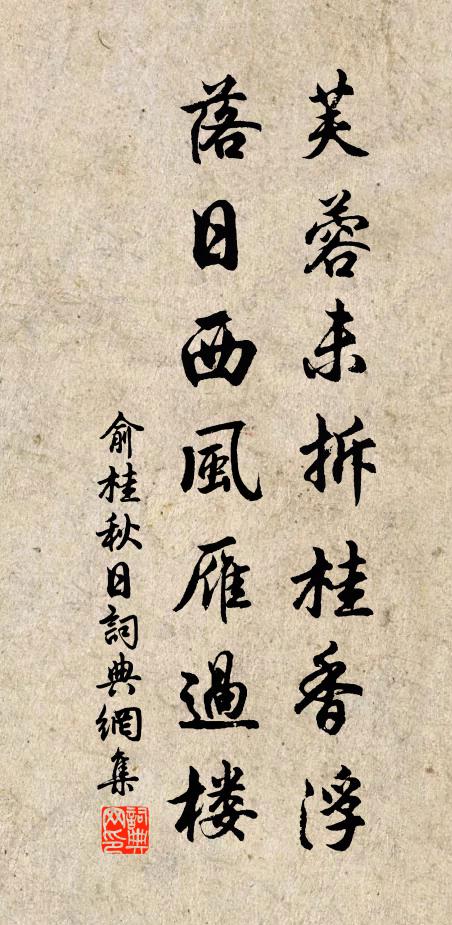 芙蓉未拆桂香浮
落日西風雁過楼
俞桂秋日詞典網集
詞典網印